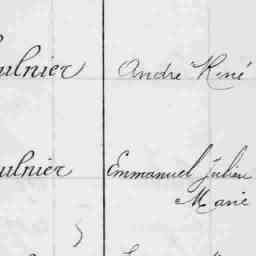 ulnier André René
ulnier Emmanuel Julien
Marie